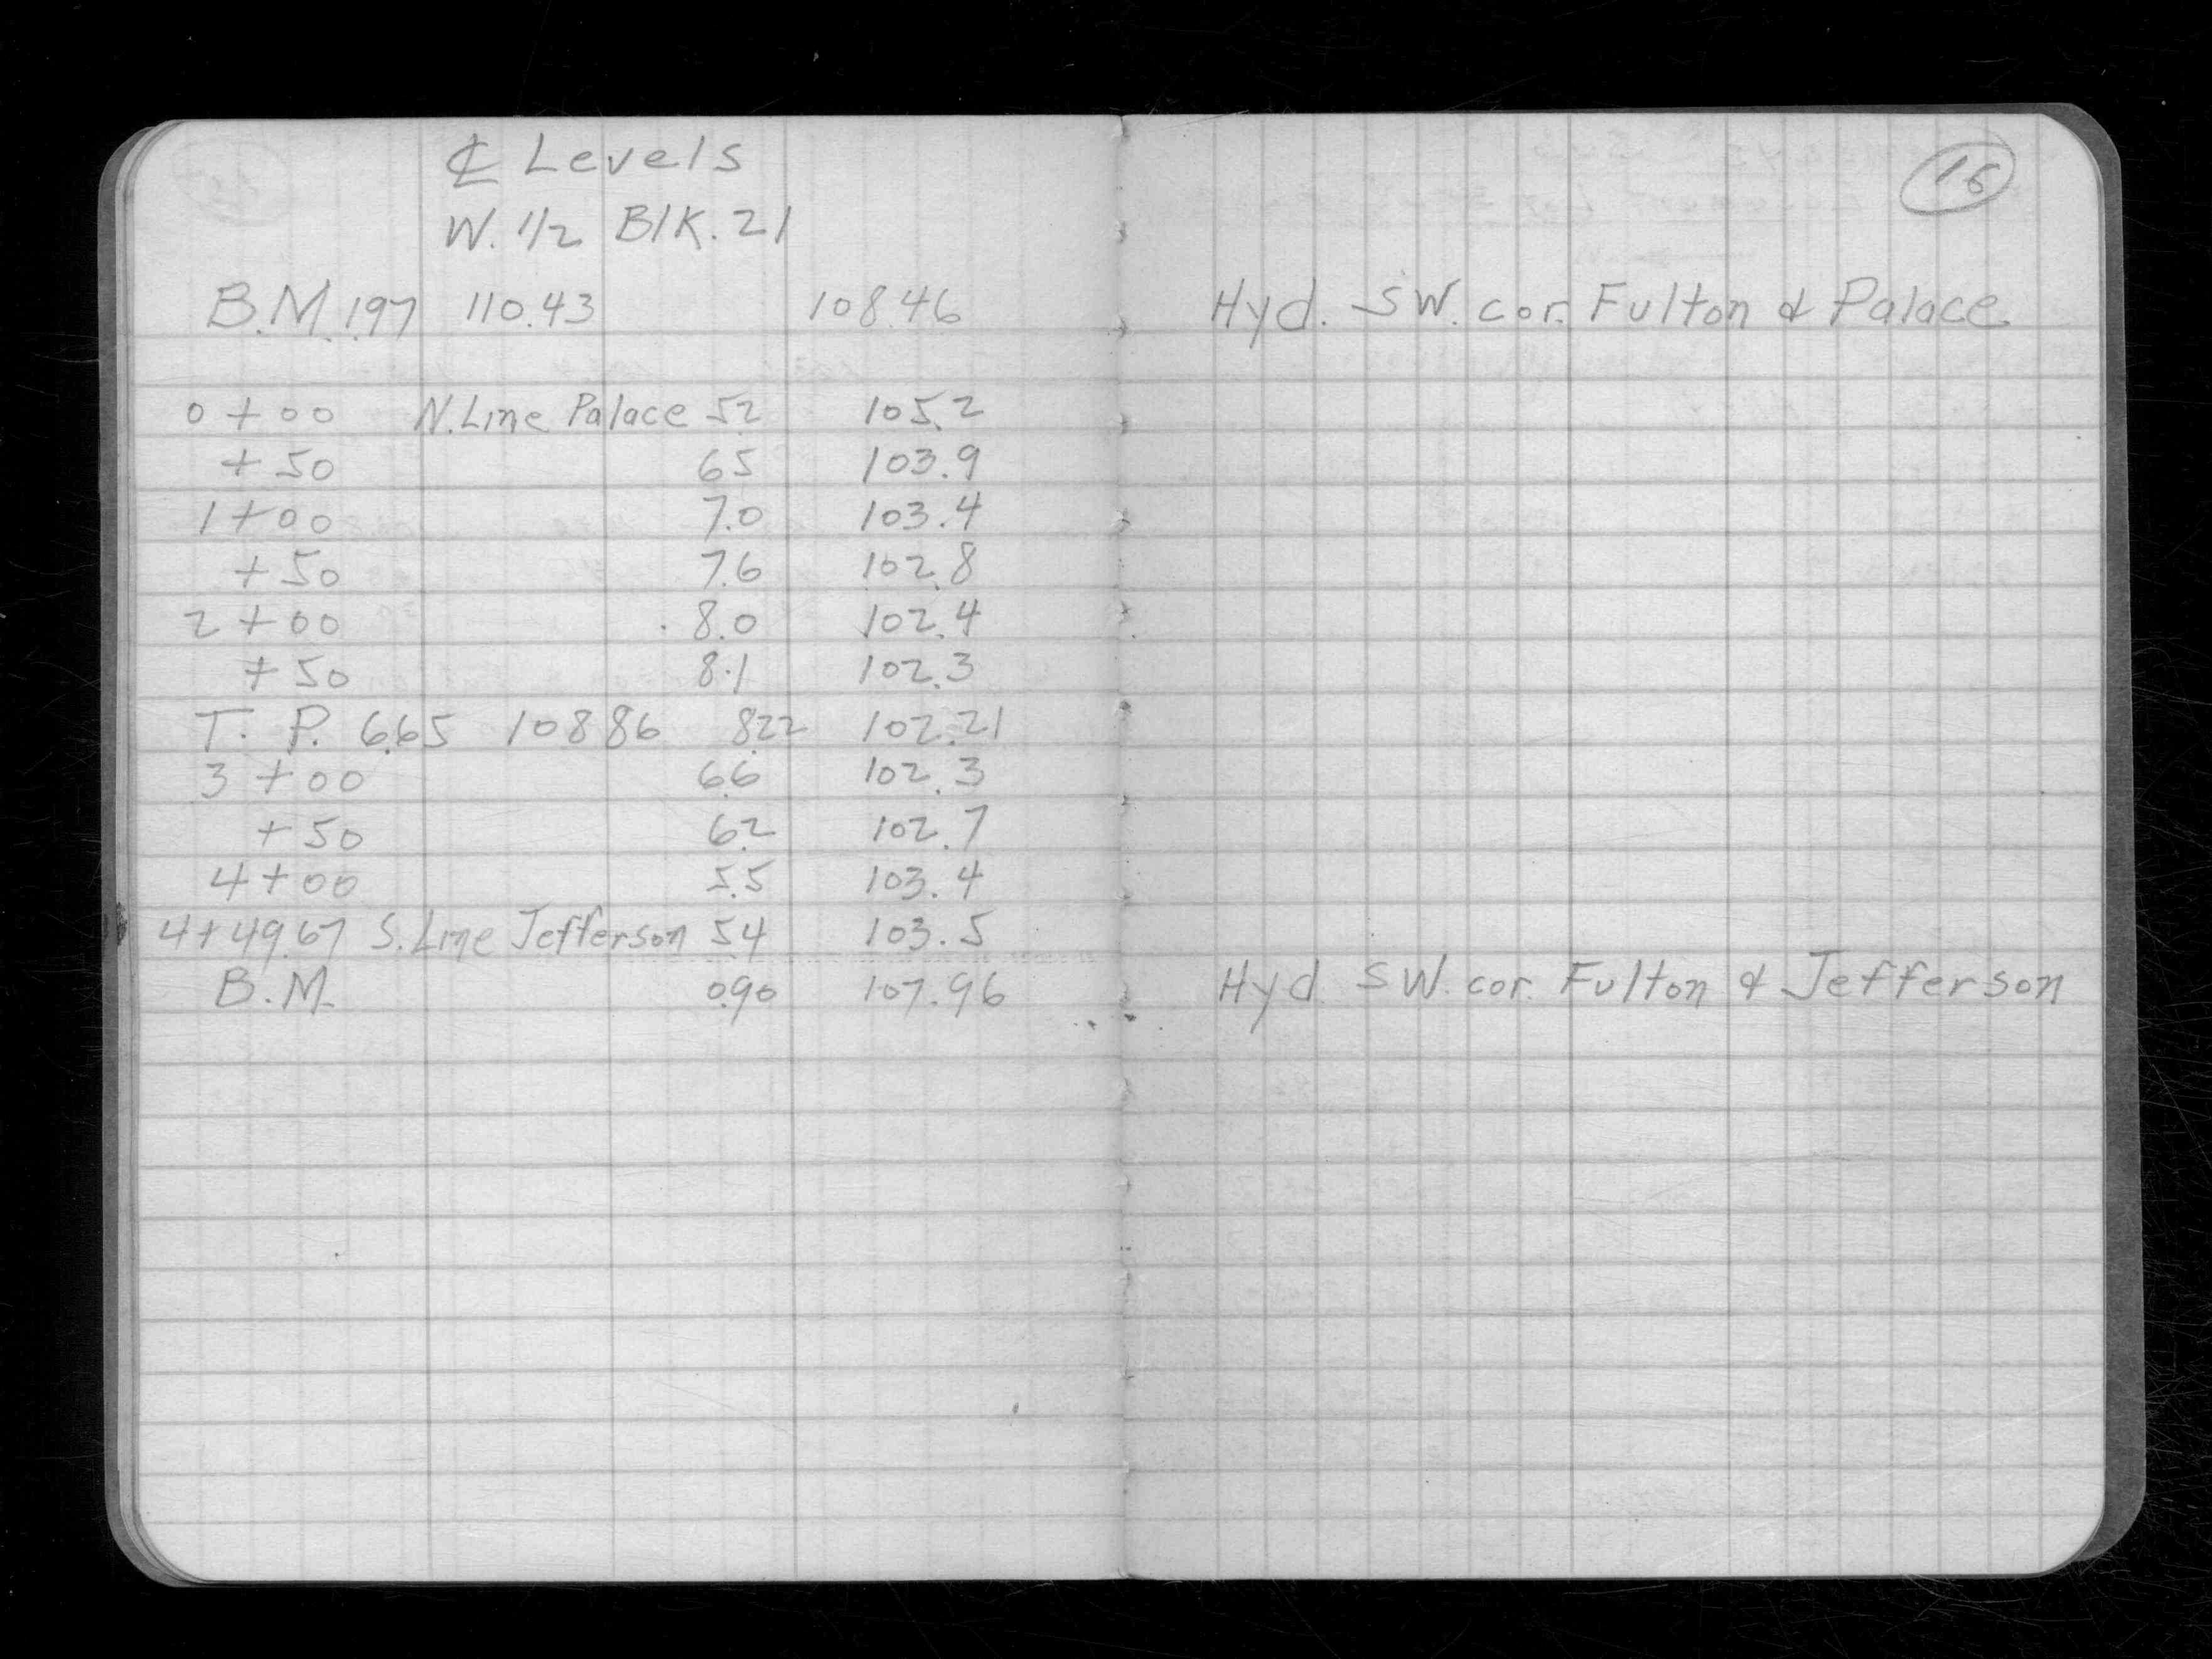 16
℄ Levels
W. 1/2 Blk. 21
B.M. 1.97 110.43 108.46 Hyd. SW. cor. Fulton & Palace
0+00 N. Line Palace 5.2 105.2
+50 6.5 103.9
1+00 7.0 103.4
+50 7.6 102.8
2+00 8.0 102.4
+50 8.1 102.3
T. P. 6.65 108.86 8.22 102.21
3+00 6.6 102.3
+50 6.2 102.7
4+00 5.5 103.4
4+49.67 S. Line Jefferson 5.4 103.5
B.M. 0.90 107.96 Hyd. SW. cor. Fulton & Jefferson